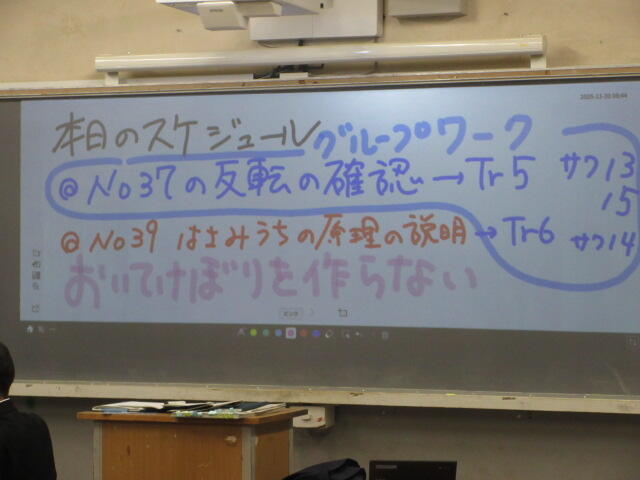 本日のスケジュール グループワーク
@ No37の反転の確認 → Tr5 サク13
15
@ No39 はさみうちの原理の説明 → Tr6 サク14
おいてけぼりを作らない